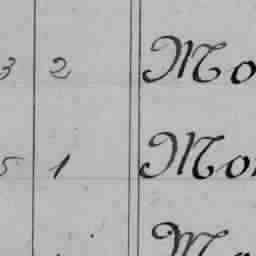 3 2 Mo
5 1 Mo